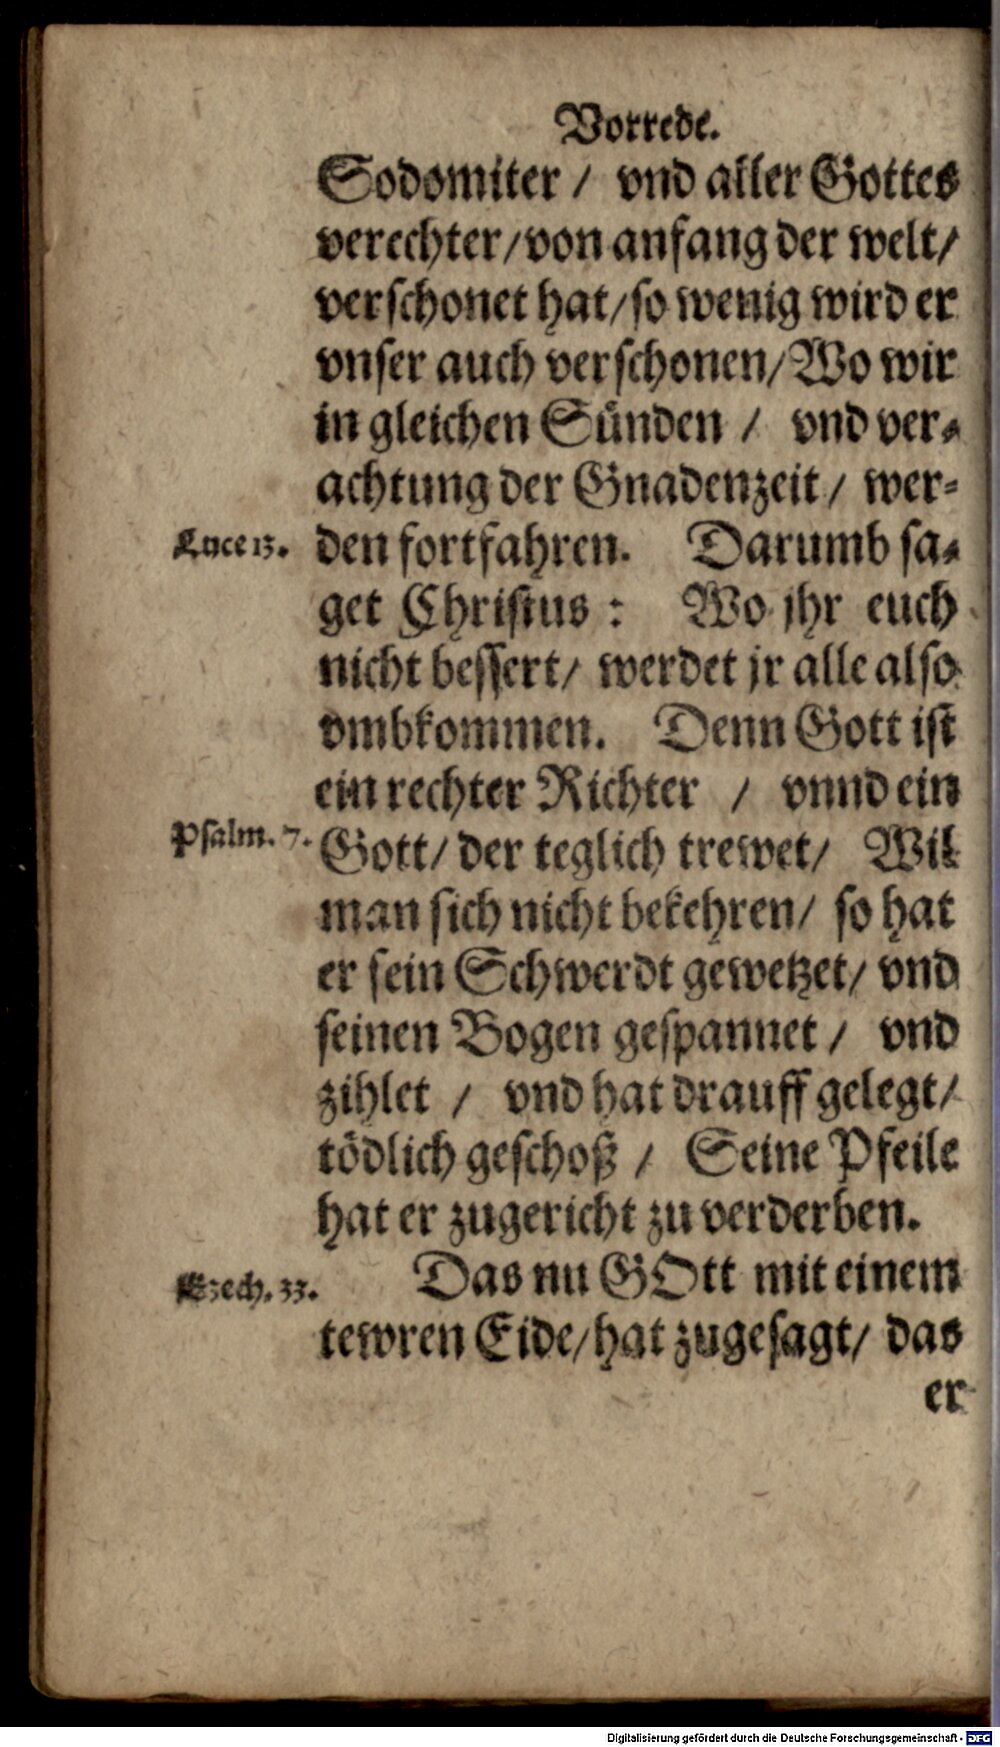 Vorrede.
Sodomiter / vnd aller Gottes
verechter / von anfang der welt /
verschonet hat / so wenig wird er
vnser auch verschonen / Wo wir
in gleichen Sünden / vnd ver-
achtung der Gnadenzeit / wer-
Luce 13. den fortfahren. Darumb sa-
get Christus : Wo jhr euch
nicht bessert / werdet jr alle also
vmbkommen. Denn Gott ist
ein rechter Richter / vnnd ein
Psalm. 7. Gott / der teglich trewet / Wil
man sich nicht bekehren / so hat
er sein Schwerdt gewetzet / vnd
seinen Bogen gespannet / vnd
zihlet / vnd hat drauff gelegt /
tödlich geschoß / Seine Pfeile
hat er zugericht zu verderben.
Ezech. 33. Das nu GOtt mit einem
tewren Eide / hat zugesagt / das
er
Digitalisierung gefördert durch die Deutsche Forschungsgemeinschaft - DFG